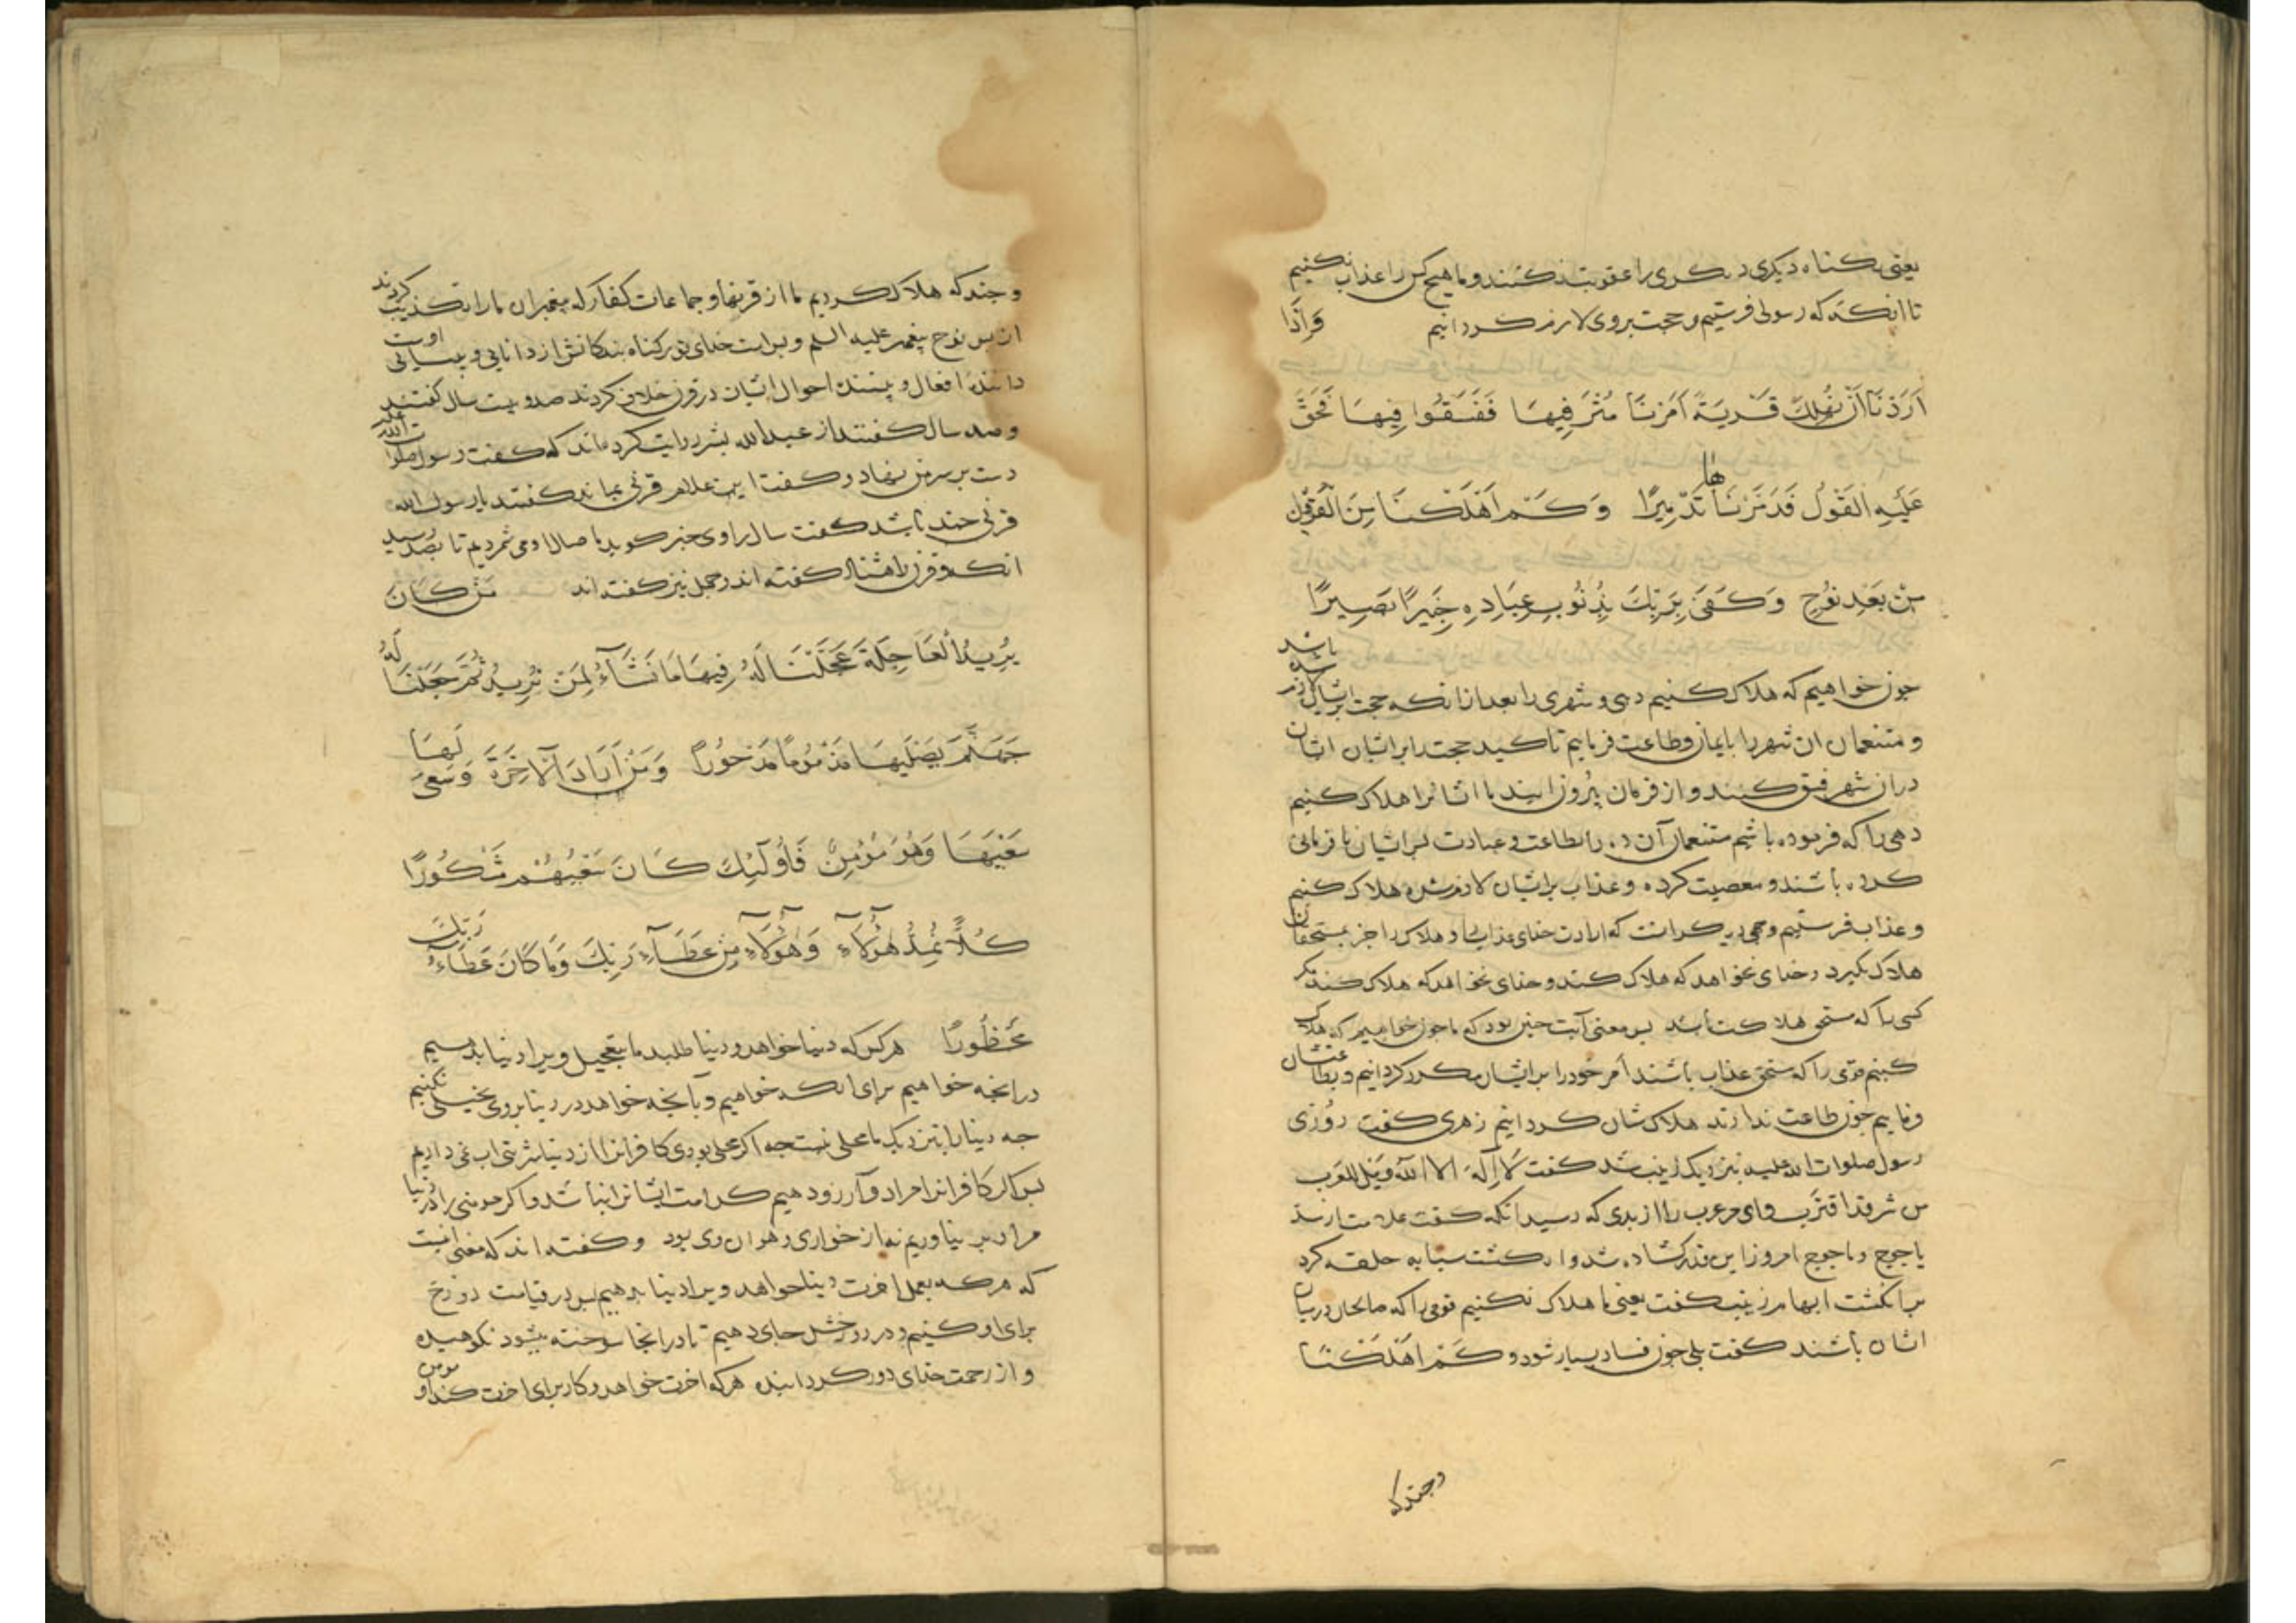 یعنی بکناه دیکری دیکری را عقوبت نکنند و ما هیچ کس را عذاب نکنیم
تا انکه که رسولی فرستیم و حجت بر وی لازم کردانیم وَاِذَا
اَرَدْنَا اَنْ نُهْلِكَ قَرْيَةً اَمَرْنَا مُتْرَفِيهَا فَفَسَقُوا فِيهَا فَحَقَّ
عَلَيْهِ الْقَوْلُ فَدَمَّرْنَاهَا تَدْمِيرًا وَكَمْ اَهْلَكْنَا مِنَ الْقُرُونِ
مِنْ بَعْدِ نُوحٍ وَكَفَى بِرَبِّكَ بِذُنُوبِ عِبَادِهِ خَبِيرًا بَصِيرًا
جون خواهیم که هلاک کنیم دهی و شهری را بعد از انکه حجت بر ایشان لازم شده باشد
و متنعمان ان شهر را بایمان و طاعت فرماییم تاکید حجت را بر ایشان ایشان
در ان شهر فسق کنند و از فرمان بیرون ایند ما ایشانرا هلاک کنیم
دهی را که فرموده باشیم متنعمان آن ده را بطاعت و عبادت بس ایشان نافرمانی
کرده باشند و معصیت کرده و عذاب بر ایشان لازم شده هلاک کنیم
و عذاب فرستیم و وجهی دیکر انست که ارادت خدای عذاب را و هلاک را جز بمستحقان
هلاک نکیرد و خدای نخواهد که هلاک کند و خدای نخواهد که هلاک کند مکر
کسی را که مستحق هلاکت باشد بس معنی آیت جنین بود که ما جون خواهیم که هلاک
کنیم قومی را که مستحق عذاب باشند امر خود را بر ایشان مکرر کردانیم و بطاعتشان
فرماییم جون طاعت ندارند هلاکشان کردانیم زهری کفت روزی
رسول صلوات الله علیه نزدیک زینب شد کفت لا اله الا الله ویل للعرب
من شر قد اقترب وای مر عرب را از بدی که رسید انکه کفت علامت
یاجوج و ماجوج امروز این قدر کشاده شد و انکشت سبابه حلقه کرد
بر انکشت ابهام زینب کفت یعنی ما هلاک نکنیم قومی را که صالحان در میان
ایشان باشند کفت بلی جون فساد بسیار شود وَكَمْ اَهْلَكْنَا
وجندکه
وجندکه هلاک کردیم ما از قرنها و جماعات کفار که بیغمبران ما را تکذیب کردند
از بس نوح بیغمبر علیه السلم و بس است خدای تو بر کناه بندکانش از دانایی و بینایی اوست
دانندۀ افعال و بینندۀ احوال ایشان در قرن خلاف کردند صد و بیست سال کفتند
و صد سال کفتند از عبدالله بشر روایت کرده اند که کفت رسول صلوات الله علیه
دست بر سر من نهاد و کفت این غلام قرنی بماند کفتند یا رسول الله
قرنی جند باشد کفت سال راوی خبر کوید ما سالها او می شمردیم تا بصد رسید
انکه و قرن را هشتاد کفته اند و جهل نیز کفته اند مَنْ كَانَ
يُرِيدُ الْعَاجِلَةَ عَجَّلْنَا لَهُ فِيهَا مَا نَشَآءُ لِمَنْ نُرِيدُ ثُمَّ جَعَلْنَا لَهُ
جَهَنَّمَ يَصْلَيهَا مَذْمُومًا مَدْحُورًا وَمَنْ اَرَادَ الْآخِرَةَ وَسَعَى لَهَا
سَعْيَهَا وَهُوَ مُؤْمِنٌ فَاُولٓئِكَ كَانَ سَعْيُهُمْ مَشْكُورًا
كُلًّا نُمِدُّ هٰٓؤُلَآءِ وَهٰٓؤُلَآءِ مِنْ عَطَآءِ رَبِّكَ وَمَا كَانَ عَطَآءُ رَبِّكَ
مَحْظُورًا هرکس که دنیا خواهد و دنیا طلبد ما بتعجیل ویرا دنیا بدهیم
در انجه خواهیم برای انکه خواهیم و بآنجه خواهد در دنیا بر وی بخیلی نکنیم
جه دنیا را بنزدیک ما محلی نیست جه اکر محلی بودی کافرانرا از دنیا شربتی اب نمی دادیم
بس اکر کافرانرا مراد و آرزو دهیم کرامت ایشانرا نباشد و اکر مومنی را در دنیا
مراد بر نیاوریم نه از خواری و هوان وی بود و کفته اند که معنی انست
که هر که بعمل اخرت دنیا خواهد ویرا دنیا بدهیم بس در قیامت دوزخ
برای او کنیم و در دوزخش جای دهیم تا در انجا سوخته میشود نکوهیده
و از رحمت خدای دور کردانیده هرکه اخرت خواهد و کار برای اخرت کند و او مومن